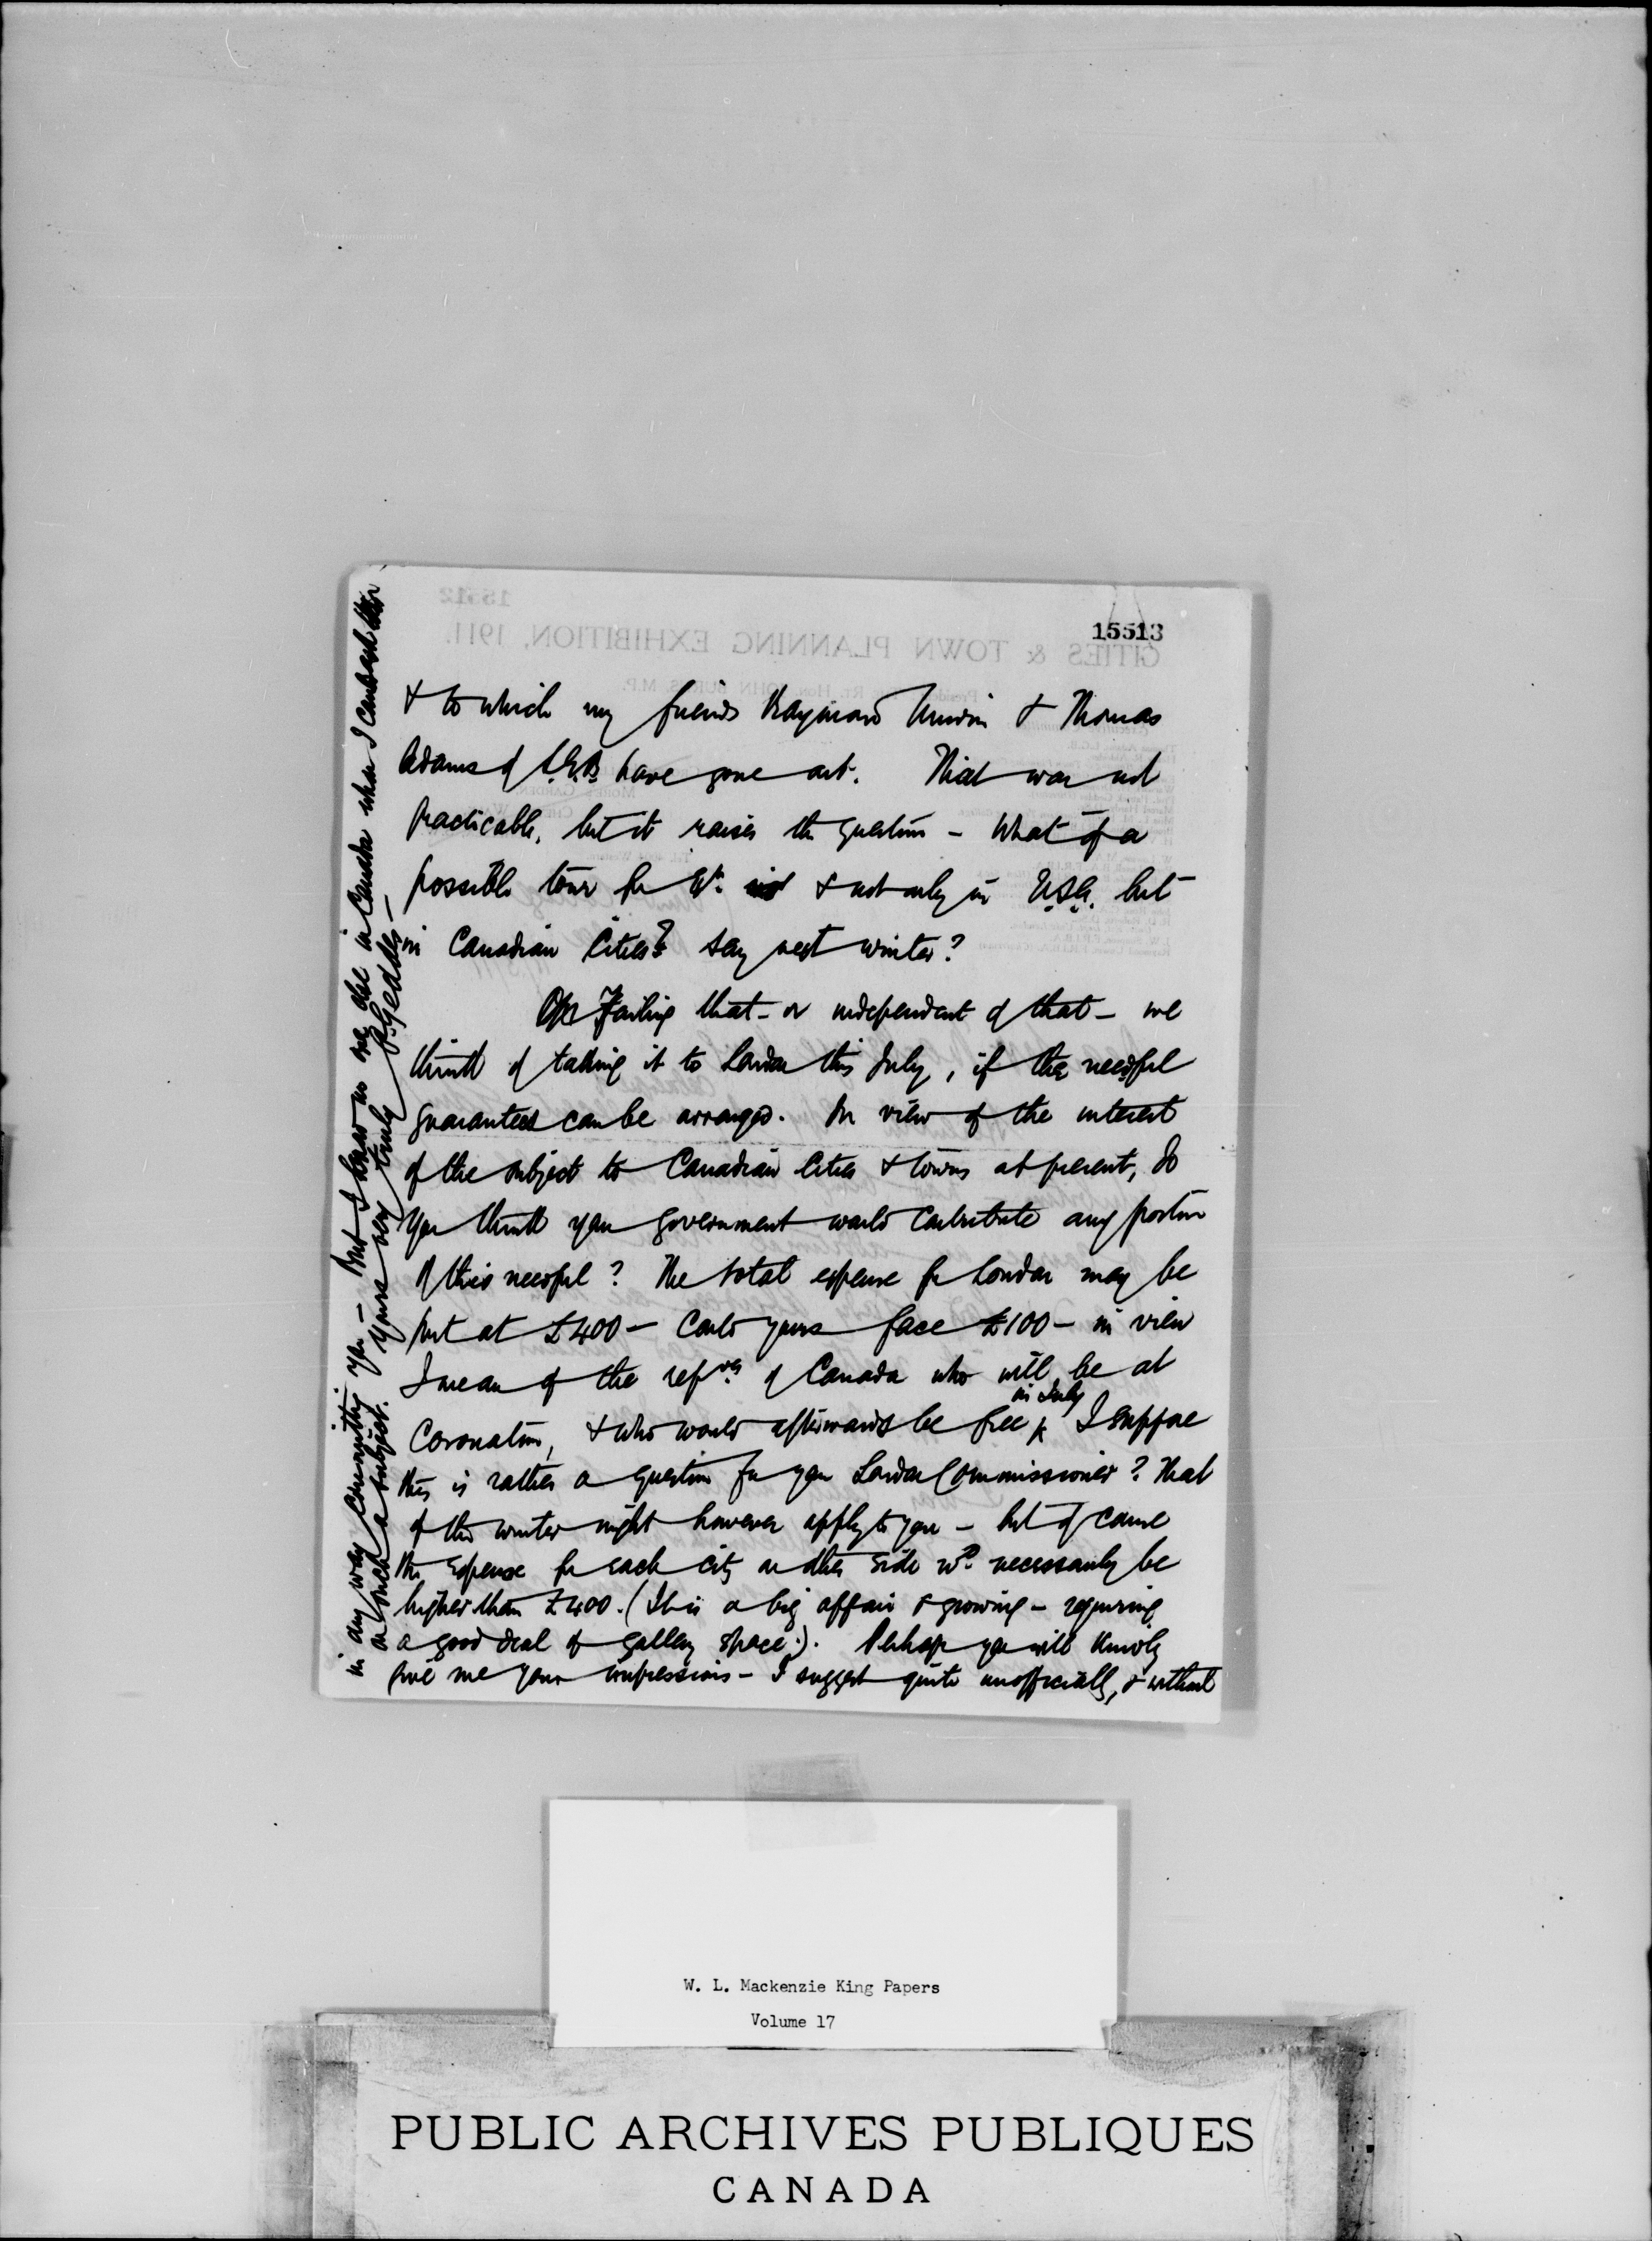 15513
& to which my friends Raymond Unwin & Thomas
Adams of L.G.B. have gone out. That was not
practicable, but it raises the question – What of a
possible tour for Exn. & not only in U.S.A. but
in Canadian Cities? say next winter?
Failing that – or independent of that – we
think of taking it to London this July, if the needful
guarantees can be arranged. In view of the interest
of the subject to Canadian Cities & towns at present, do
you think your government would contribute any portion
of this needful? The total expense for London may be
put at £400 – Could yours face £100 – in view
I mean of the repves. of Canada who will be at
Coronation, & who would afterwards be free in July I suppose
this is rather a question for your London Commissioner? That
of the winter might however apply to you – but of course
the expense for each city on other side wd. necessarily be
higher than £400. (It is a big affair & growing – requiring
a good deal of gallery space.). Perhaps you will kindly
give me your impressions – I suggest quite unofficially, & without
in any way committing you – But I know no one else in Canada whom I can
on such a subject. Yours very truly P. Geddes –
CITIES & TOWN PLANNING EXHIBITION, 1911.
15512
W. L. Mackenzie King Papers
Volume 17
PUBLIC ARCHIVES PUBLIQUES
CANADA